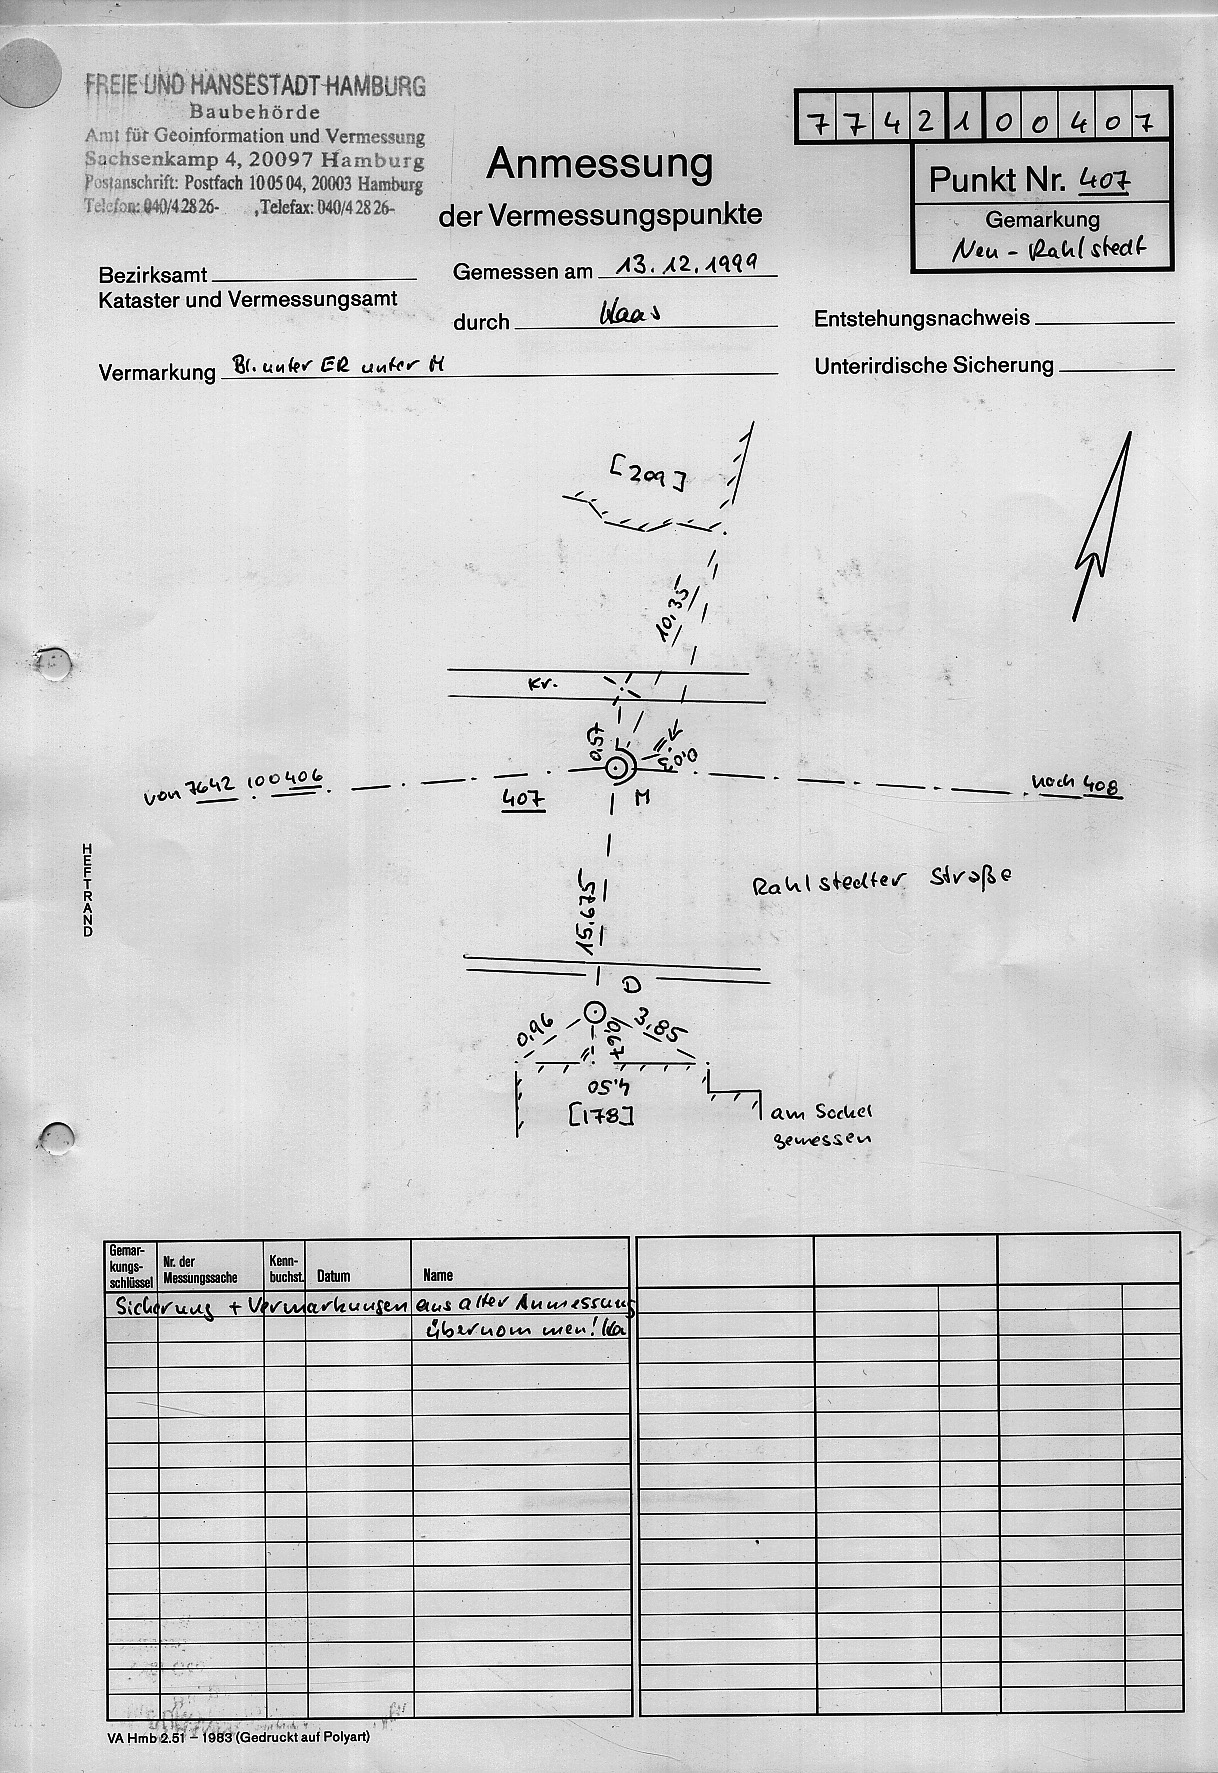 FREIE UND HANSESTADT HAMBURG
Baubehörde
Amt für Geoinformation und Vermessung
Sachsenkamp 4, 20097 Hamburg
Postanschrift: Postfach 10 05 04, 20003 Hamburg
Telefon: 040/4 28 26- ,Telefax: 040/4 28 26-
7742100407
Anmessung
der Vermessungspunkte
Punkt Nr. 407
Gemarkung
Neu-Rahlstedt
Bezirksamt
Kataster und Vermessungsamt
Gemessen am 13.12.1999
durch Haas
Entstehungsnachweis
Vermarkung Bl. unter ER unter M
Unterirdische Sicherung
[209]
10,35
Kr.
0,57
0,03
von 7642 100406
407
M
nach 408
HEFTRAND
Rahlstedter Straße
15,675
D
0,96
0,67
3,85
4,50
[178]
am Sockel
gemessen
Gemar-
kungs-
schlüssel
Nr. der
Messungssache
Kenn-
buchst.
Datum
Name
Sicherung + Vermarkungen aus alter Anmessung
übernommen! Ha
VA Hmb 2.51 – 1983 (Gedruckt auf Polyart)